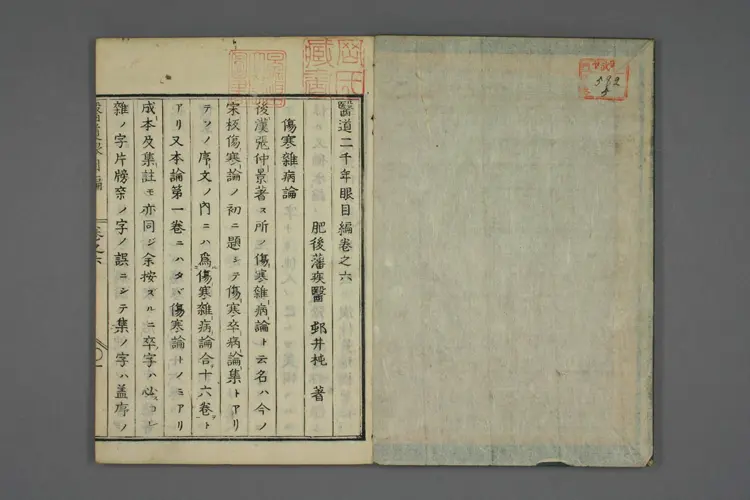 醫道二千年眼目編卷之六
肥後藩疾醫 邨井杶 著
傷寒雜病論
後漢張仲景著ス所ノ傷寒雜病論ト云名ハ今ノ
宋板傷寒論ノ初ニ題シテ傷寒卒病論集トアリ
テソノ序文ノ内ニハ爲傷寒雜病論合十六卷ト
アリ又本論第一卷ニハタヾ傷寒論トノミアリ
成本及集註モ亦同ジ余按ズルニ卒字ハ必コレ
雜ノ字片牓ノ字ノ誤ニシテ集ノ字ハ蓋序ノ
卷之六
592